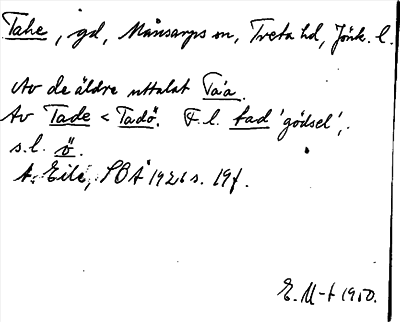 Tahe, gd, Månsarps sn, Tveta hd, Jönk. l.
Av de äldre uttalat Ta'a.
Av Tade < Tadö. F.l. tad 'gödsel',
s.l. ö.
A. Eile, SOÅ 1926 s. 19f.
E. U-t 1950.